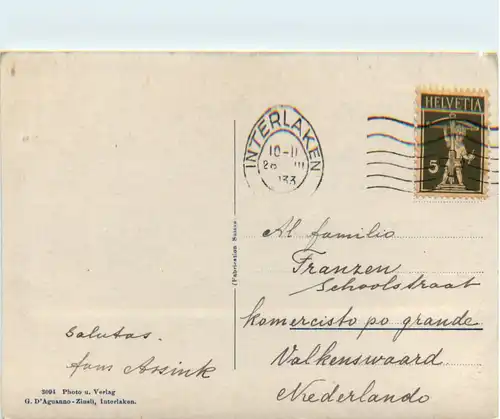 INTERLAKEN
10-11
28 III
133
HELVETIA
5
Al familio
Franzen
Schoolstraat
komercisto po grande
Valkenswaard
Nederlando
(Fabrication Suisse.
Salutas.
Hans Assink
3094 Photo u. Verlag
G. D'Aguanno-Zinsli, Interlaken.